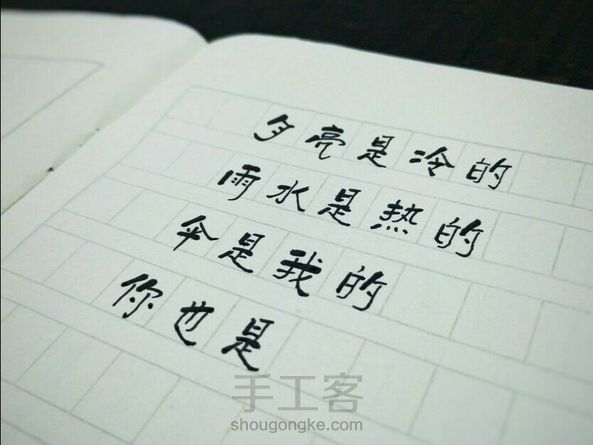 月亮是冷的
雨水是热的
伞是我的
你也是
手工客
shougongke.com